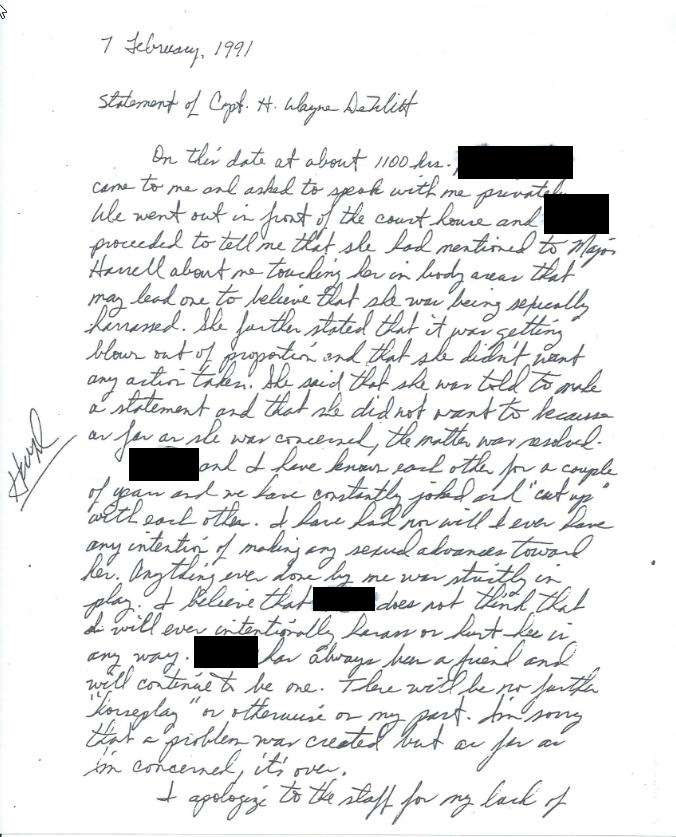 7 February, 1991
Statement of Capt. H. Wayne DeWitt
On this date at about 1100 hrs.
came to me and asked to speak with me privately
We went out in front of the court house and
proceeded to tell me that she had mentioned to Major
Harrell about me touching her in body areas that
may lead one to believe that she was being sexually
harrassed. She further stated that it was getting
blown out of proportion and that she didn't want
any action taken. She said that she was told to make
a statement and that she did not want to because
as far as she was concerned, the matter was resolved.
and I have known each other for a couple
of years and we have constantly joked and "cut up"
with each other. I have had nor will I ever have
any intention of making any sexual advances toward
her. Anything ever done by me was strictly in
play. I believe that does not think that
I will ever intentionally harass or hurt her in
any way. has always been a friend and
will continue to be one. There will be no further
"horseplay" or otherwise on my part. I'm sorry
that a problem was created but as far as
I'm concerned, it's over.
I apologize to the staff for my lack of